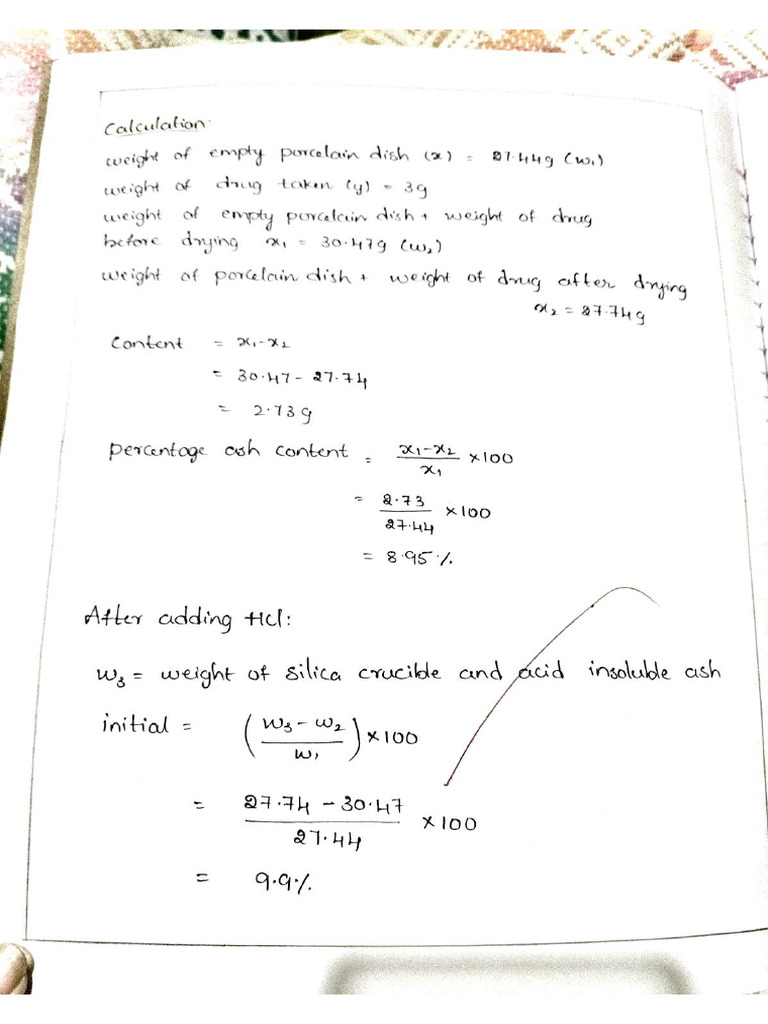 Calculation.
weight of empty porcelain dish (x) = 27.44g (w₁)
weight of drug taken (y) = 3g
weight of empty porcelain dish + weight of drug
before drying x₁ = 30.47g (w₂)
weight of porcelain dish + weight of drug after drying
x₂ = 27.74g
Content = x₁-x₂
= 30.47 - 27.74
= 2.73g
percentage ash content = x₁-x₂ / x₁ ×100
= 2.73 / 27.44 ×100
= 8.95%
After adding Hcl:
w₃ = weight of silica crucible and acid insoluble ash
initial = (w₃ - w₂ / w₁) ×100
= 27.74 - 30.47 / 27.44 ×100
= 9.9%